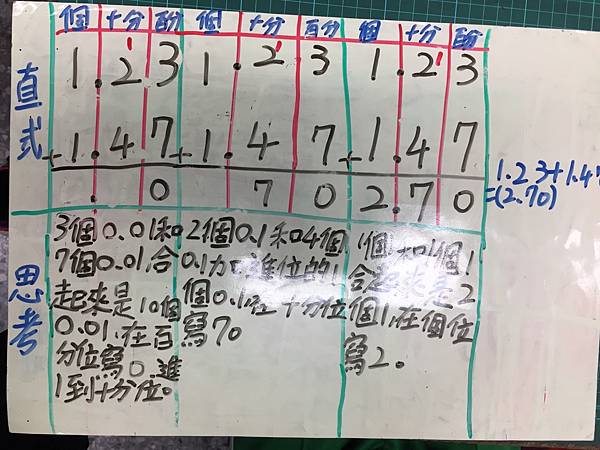 個 十分 百分 個 十分 百分 個 十分 百分
1 1 1
直式
1.23 1.23 1.23
+1.47 +1.47 +1.47
. 0 70 2.70
1.23+1.4
=(2.70)
思考
3個0.01和
7個0.01合
起來是10個
0.01,在百
分位寫0,進
1到十分位。
2個0.1和4個
0.1加進位的1
個0.1,在十分位
寫7。
1個1和1個1
合起來是2
個1,在個位
寫2。